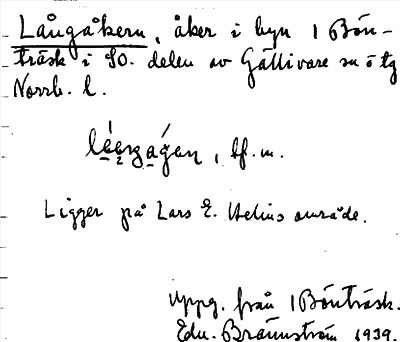 Långåkern, åker i byn 1 Bön-
träsk i SO. delen av Gällivare sn ö tg
Norrb. l.
bf. m.
Ligger på Lars E. Helins område.
Uppg. från 1 Bönträsk.
Edv. Brännström 1939.